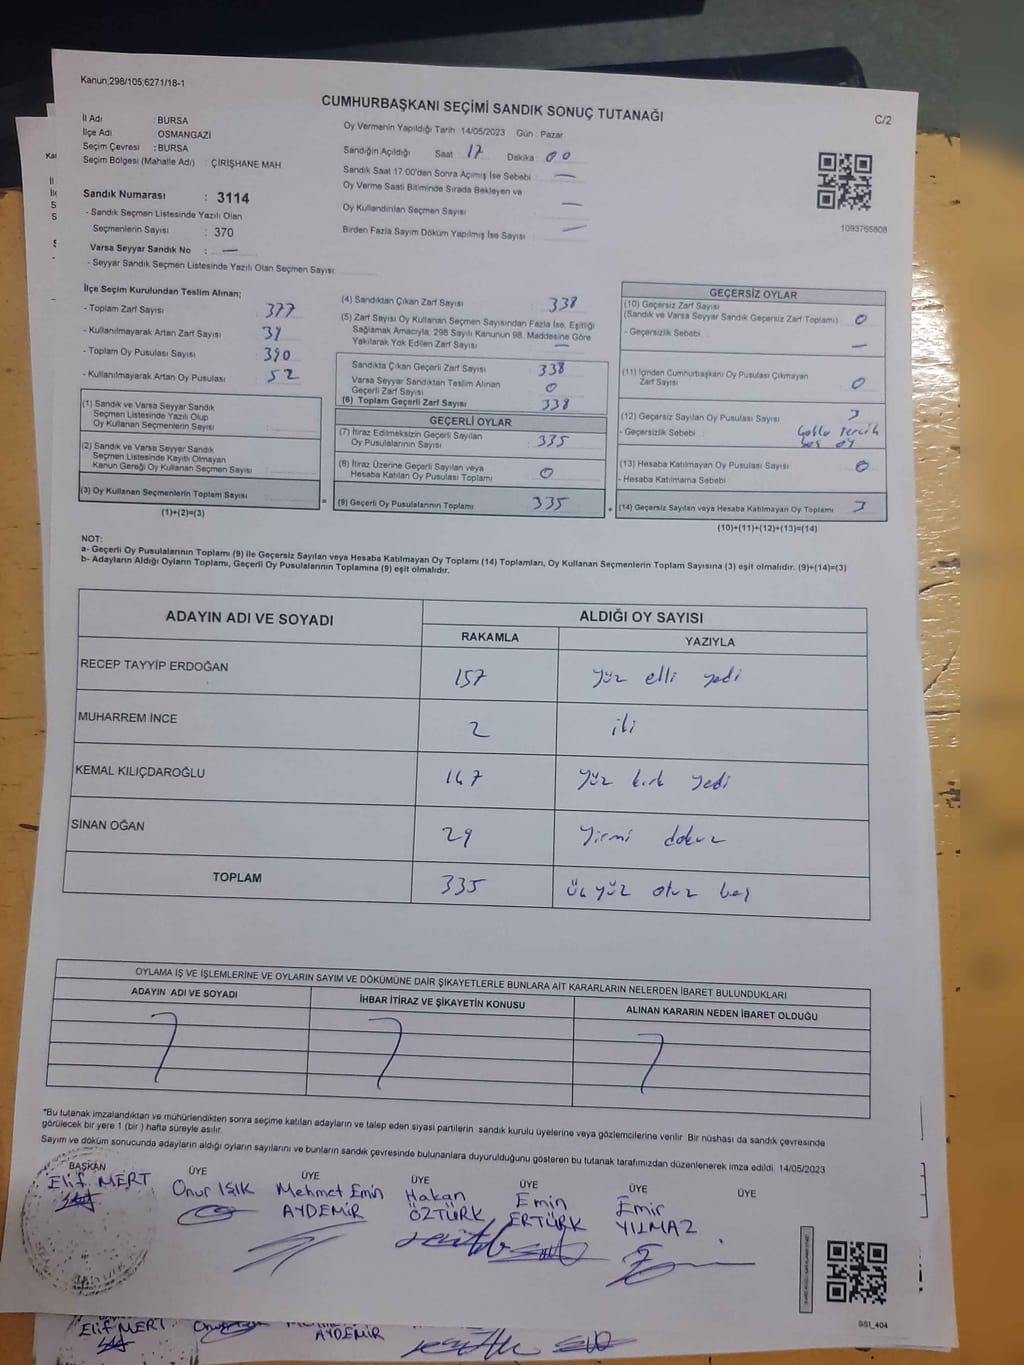 Kanun;298/105;6271/18-1
CUMHURBAŞKANI SEÇİMİ SANDIK SONUÇ TUTANAĞI
C/2
İl Adı : BURSA
İlçe Adı : OSMANGAZİ
Seçim Çevresi : BURSA
Seçim Bölgesi (Mahalle Adı) : ÇİRİŞHANE MAH.
Sandık Numarası : 3114
- Sandık Seçmen Listesinde Yazılı Olan
Seçmenlerin Sayısı : 370
Varsa Seyyar Sandık No : —
- Seyyar Sandık Seçmen Listesinde Yazılı Olan Seçmen Sayısı:
Oy Vermenin Yapıldığı Tarih 14/05/2023 Gün : Pazar
Sandığın Açıldığı Saat 17 Dakika 00
Sandık Saat 17:00'den Sonra Açımış İse Sebebi —
Oy Verme Saati Bitiminde Sırada Bekleyen ve
Oy Kullandırılan Seçmen Sayısı —
Birden Fazla Sayım Döküm Yapılmış İse Sayısı —
1093765808
İlçe Seçim Kurulundan Teslim Alınan;
- Toplam Zarf Sayısı 377
- Kullanılmayarak Artan Zarf Sayısı 39
- Toplam Oy Pusulası Sayısı 390
- Kullanılmayarak Artan Oy Pusulası 52
(1) Sandık ve Varsa Seyyar Sandık
Seçmen Listesinde Yazılı Olup
Oy Kullanan Seçmenlerin Sayısı
(2) Sandık ve Varsa Seyyar Sandık
Seçmen Listesinde Kayıtlı Olmayan
Kanun Gereği Oy Kullanan Seçmen Sayısı
(3) Oy Kullanan Seçmenlerin Toplam Sayısı
(1)+(2)=(3)
(4) Sandıktan Çıkan Zarf Sayısı 338
(5) Zarf Sayısı Oy Kullanan Seçmen Sayısından Fazla İse, Eşitliği
Sağlamak Amacıyla; 298 Sayılı Kanunun 98. Maddesine Göre
Yakılarak Yok Edilen Zarf Sayısı —
Sandıkta Çıkan Geçerli Zarf Sayısı 338
Varsa Seyyar Sandıktan Teslim Alınan
Geçerli Zarf Sayısı 0
(6) Toplam Geçerli Zarf Sayısı 338
GEÇERLİ OYLAR
(7) İtiraz Edilmeksizin Geçerli Sayılan
Oy Pusulalarının Sayısı 335
(8) İtiraz Üzerine Geçerli Sayılan veya
Hesaba Katılan Oy Pusulası Toplamı 0
= (9) Geçerli Oy Pusulalarının Toplamı 335
GEÇERSİZ OYLAR
(10) Geçersiz Zarf Sayısı
(Sandık ve Varsa Seyyar Sandık Geçersiz Zarf Toplamı) 0
- Geçersizlik Sebebi —
(11) İçinden Cumhurbaşkanı Oy Pusulası Çıkmayan
Zarf Sayısı 0
(12) Geçersiz Sayılan Oy Pusulası Sayısı 3
- Geçersizlik Sebebi : Çoklu tercih
boş oy
(13) Hesaba Katılmayan Oy Pusulası Sayısı 0
- Hesaba Katılmama Sebebi
+ (14) Geçersiz Sayılan veya Hesaba Katılmayan Oy Toplamı 3
(10)+(11)+(12)+(13)=(14)
NOT:
a- Geçerli Oy Pusulalarının Toplamı (9) ile Geçersiz Sayılan veya Hesaba Katılmayan Oy Toplamı (14) Toplamları, Oy Kullanan Seçmenlerin Toplam Sayısına (3) eşit olmalıdır. (9)+(14)=(3)
b- Adayların Aldığı Oyların Toplamı, Geçerli Oy Pusulalarının Toplamına (9) eşit olmalıdır.
ADAYIN ADI VE SOYADI ALDIĞI OY SAYISI
RAKAMLA YAZIYLA
RECEP TAYYİP ERDOĞAN 157 yüz elli yedi
MUHARREM İNCE 2 iki
KEMAL KILIÇDAROĞLU 147 yüz kırk yedi
SİNAN OĞAN 29 yirmi dokuz
TOPLAM 335 üçyüz otuz beş
OYLAMA İŞ VE İŞLEMLERİNE VE OYLARIN SAYIM VE DÖKÜMÜNE DAİR ŞİKAYETLERLE BUNLARA AİT KARARLARIN NELERDEN İBARET BULUNDUKLARI
ADAYIN ADI VE SOYADI İHBAR İTİRAZ VE ŞİKAYETİN KONUSU ALINAN KARARIN NEDEN İBARET OLDUĞU
*Bu tutanak imzalandıktan ve mühürlendikten sonra seçime katılan adayların ve talep eden siyasi partilerin sandık kurulu üyelerine veya gözlemcilerine verilir Bir nüshası da sandık çevresinde
görülecek bir yere 1 (bir ) hafta süreyle asılır.
Sayım ve döküm sonucunda adayların aldığı oyların sayılarını ve bunların sandık çevresinde bulunanlara duyurulduğunu gösteren bu tutanak tarafımızdan düzenlenerek imza edildi. 14/05/2023
BAŞKAN ÜYE ÜYE ÜYE ÜYE ÜYE ÜYE
Elif MERT Onur IŞIK Mehmet Emin AYDEMİR Hakan ÖZTÜRK Emin ERTÜRK Emir YILMAZ
SSI_404
Elif MERT
AYDEMİR